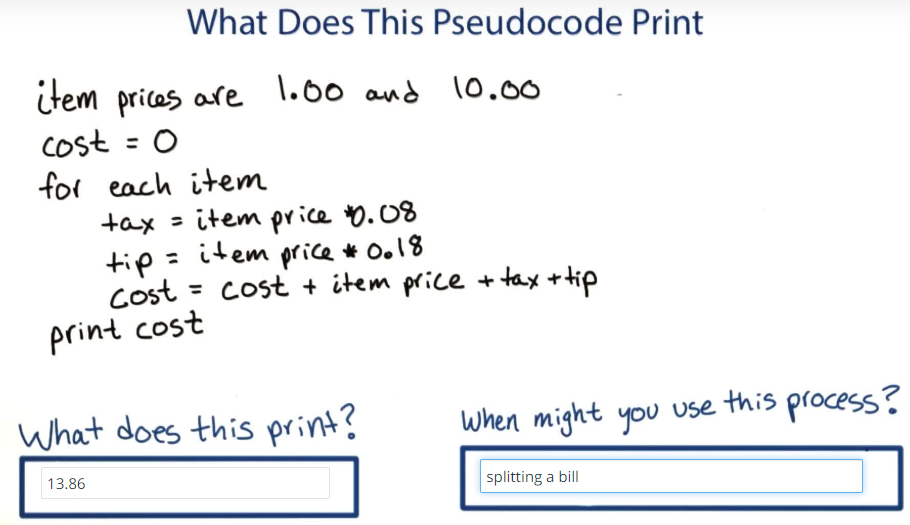 What Does This Pseudocode Print
item prices are 1.00 and 10.00
cost = 0
for each item
tax = item price *0.08
tip = item price * 0.18
cost = cost + item price + tax + tip
print cost
What does this print?
13.86
When might you use this process?
splitting a bill